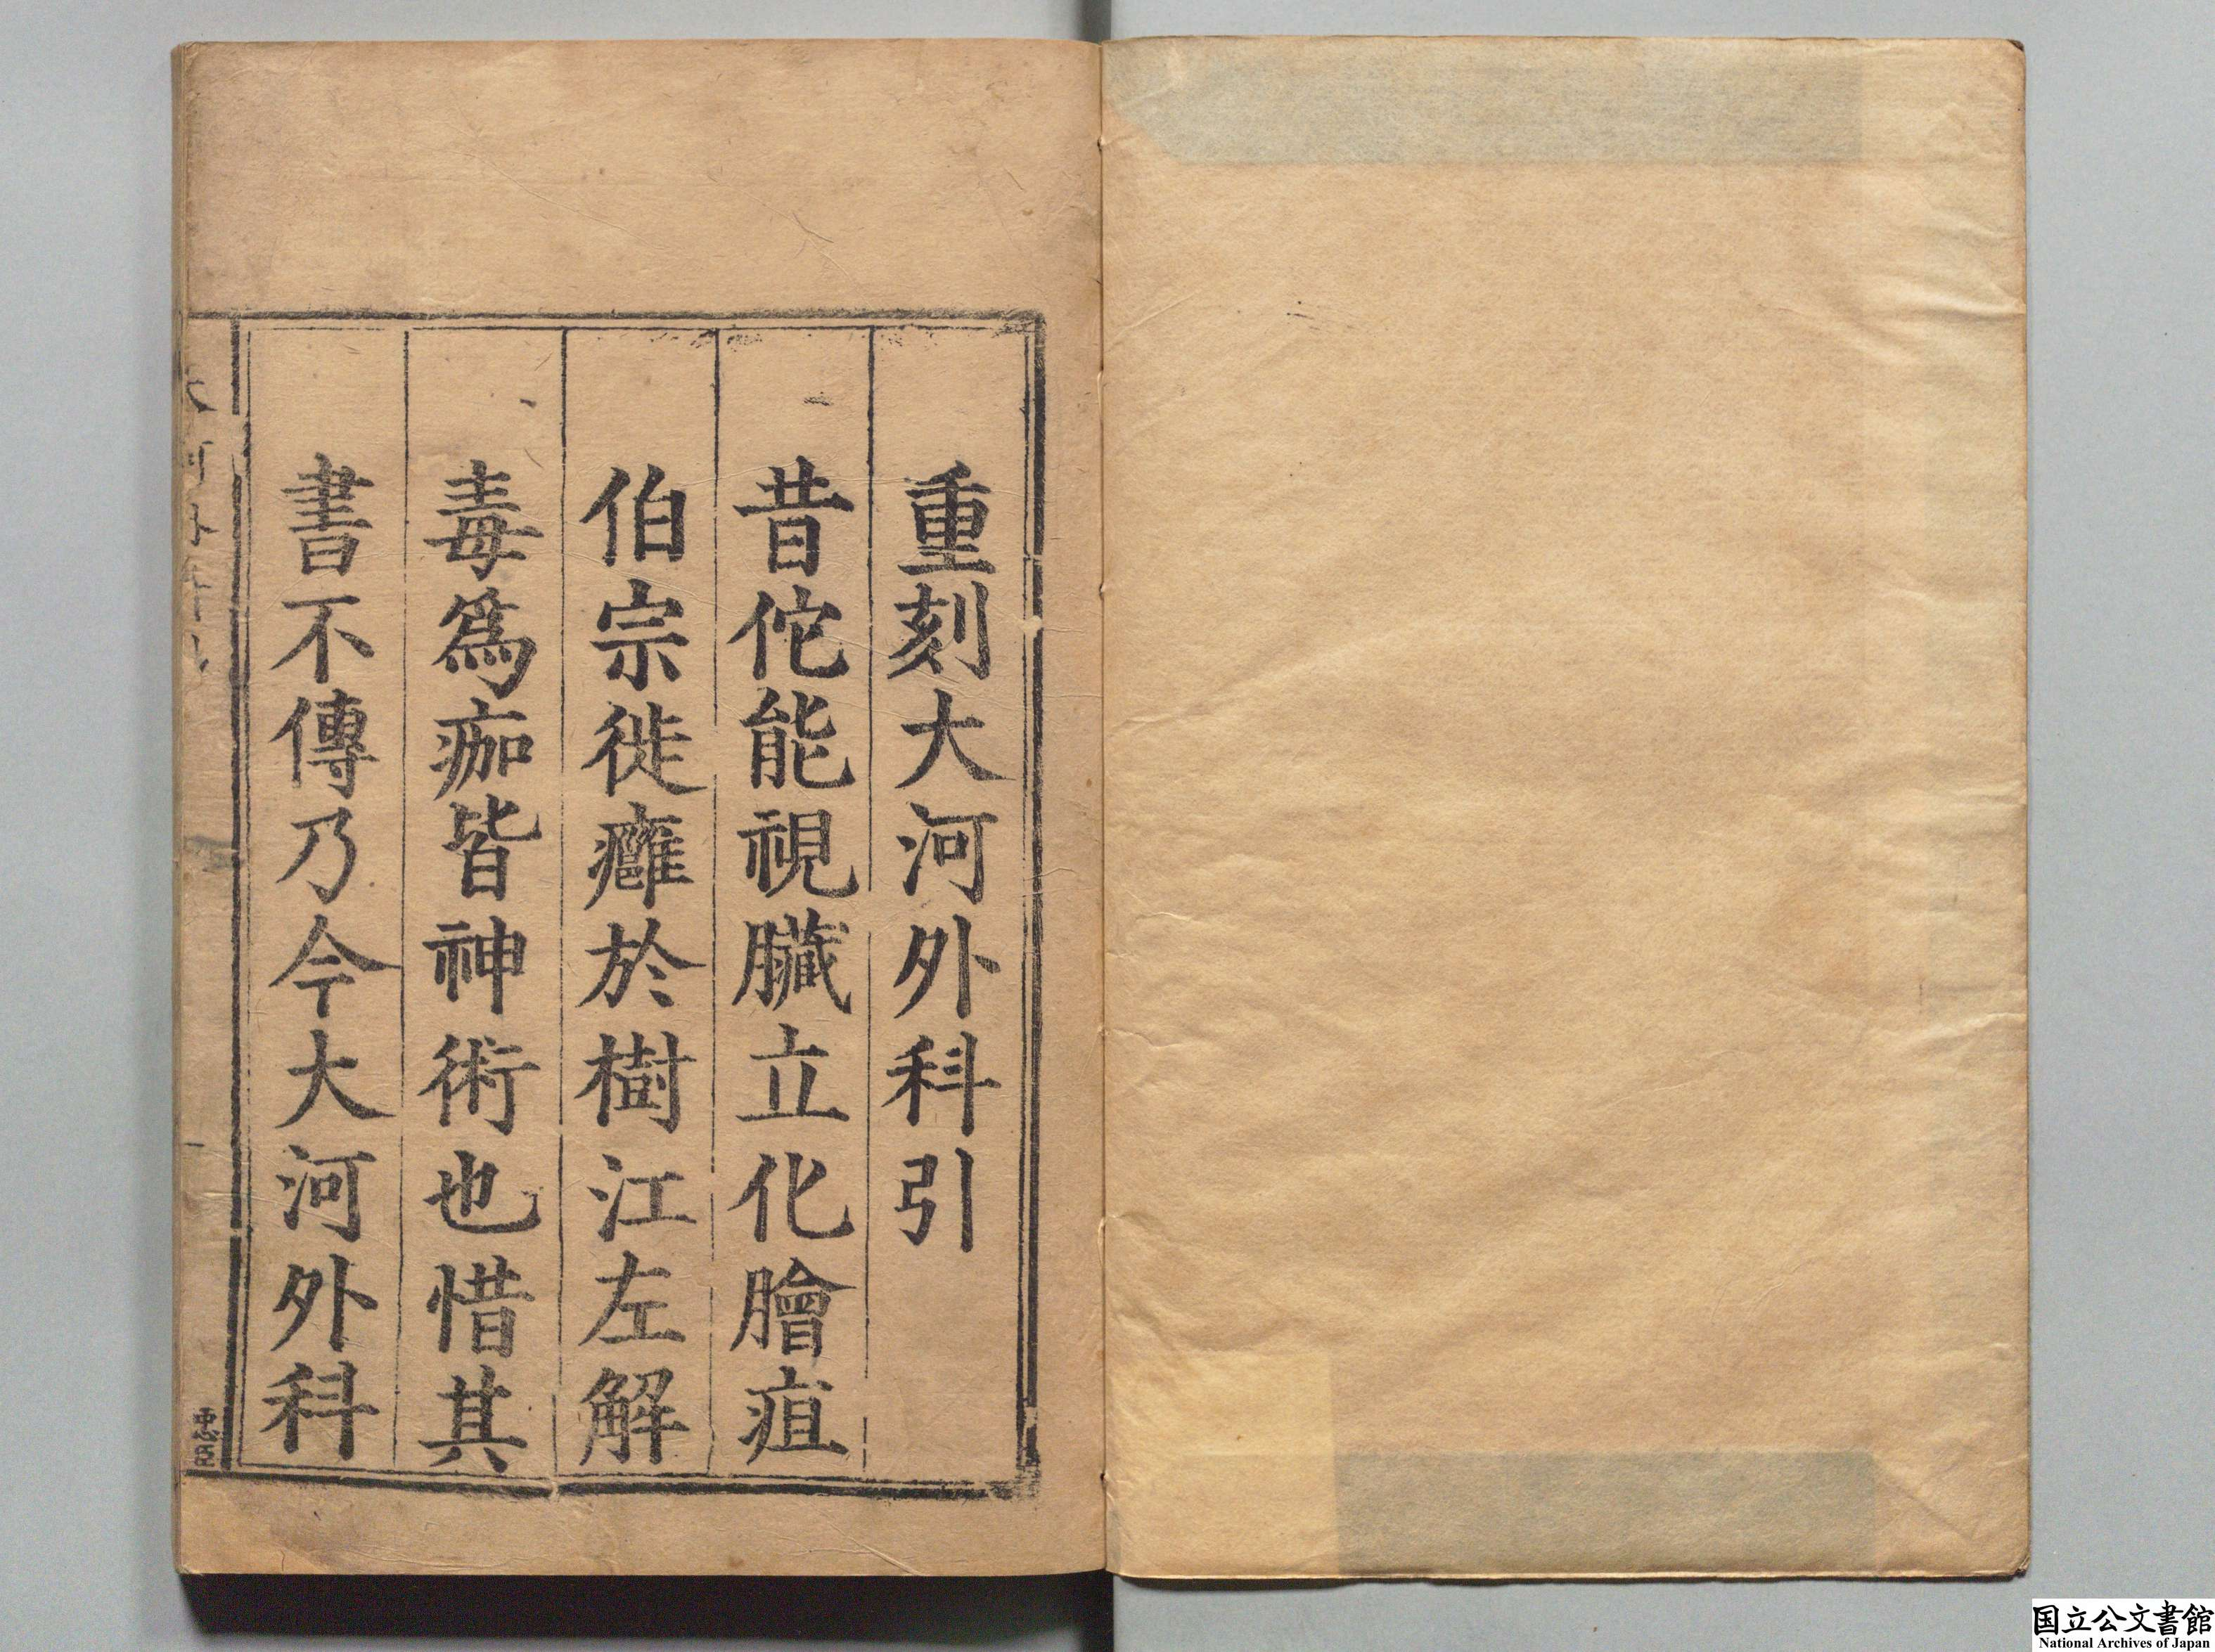 重刻大河外科引
昔佗能視臟立化膾疽
伯宗徙癰於樹江左解
毒爲痂皆神術也惜其
書不傳乃今大河外科
国立公文書館
National Archives of Japan